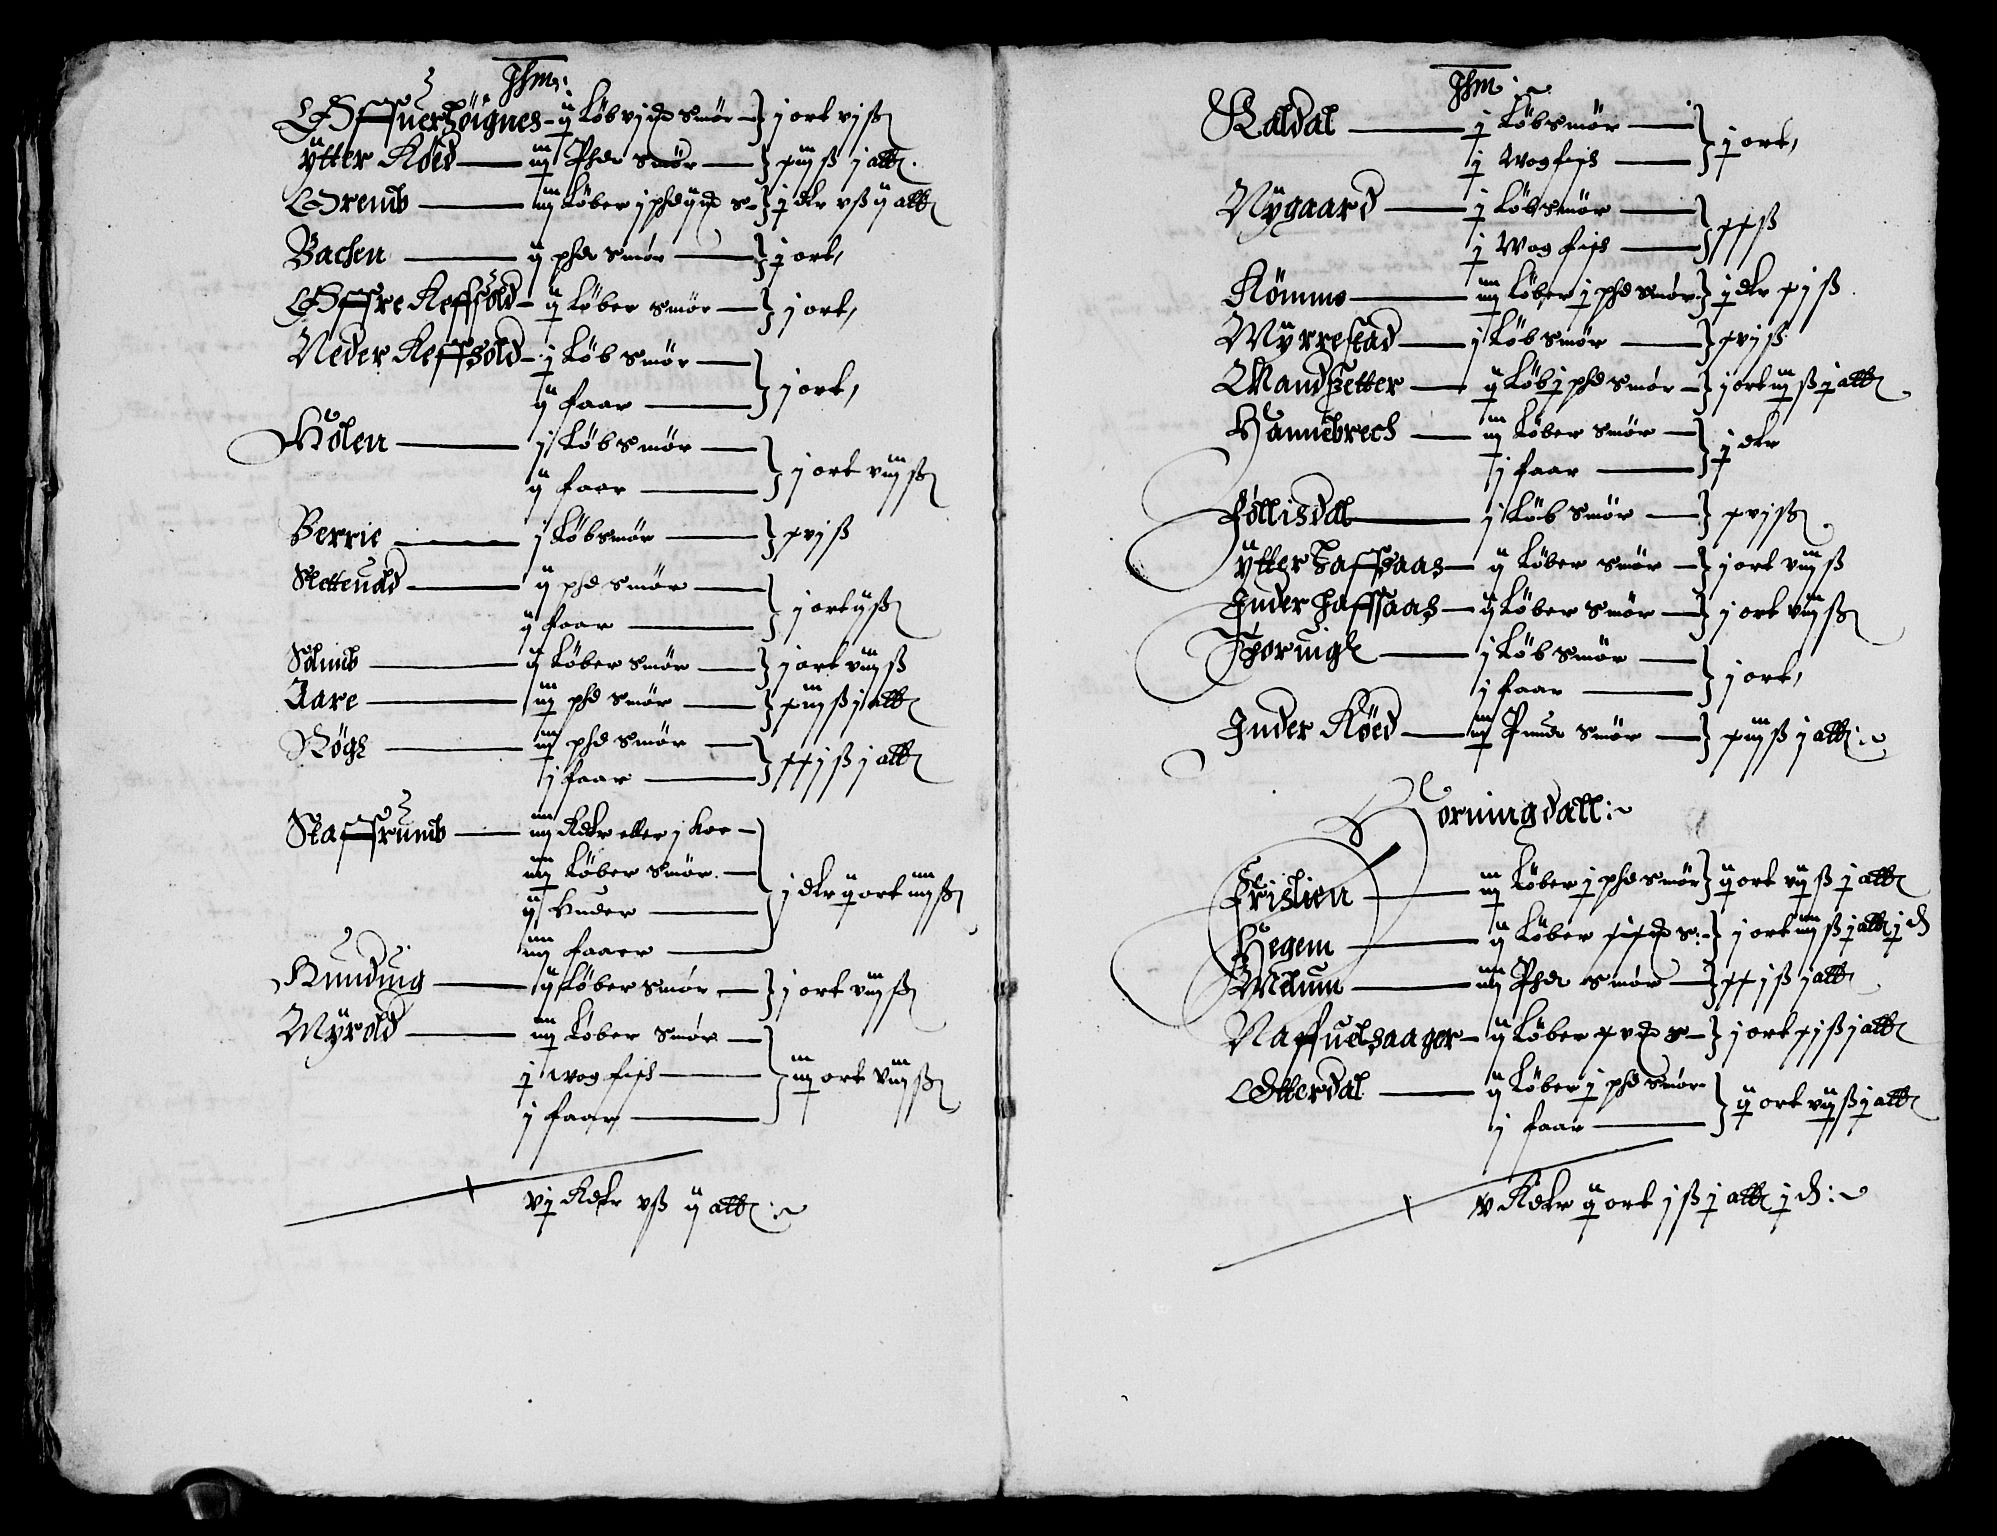 Jhm:
Offuerhöignes - ij Löb vj pd smör - j ort vj ß
ÿtter Köed - iij Phd smör - xiij ß j alb
Gremb - iij Löber j phd ij pd s - j dlr v ß ij alb
Bachen - ij phd smör - j ort,
Offre Keffsold - ij Löber smör - j ort,
Neder Keffsold - j Löb smör
ij faar - j ort,
Holen - j Löb smör
ij faar - j ort viij ß
Berrie - j Löb smör - xvj ß
Slettevold - ij phd smör
ij faar - j ort ij ß
Solimb - ij Löber smör - j ort viij ß
Aare - iij phd smör - xiij ß j alb
Rögh - iij phd smör
j faar - xxj ß j alb
Staffrumb - iiij Rdlr eller j koe
iiij Löber smör
ij huder
iiij faaer - j dlr ij ort iiij ß
Hunding - ij Löber smör - j ort viij ß
Mÿrold - iij Löber smör
j wog fisch
j faar - iij ort viij ß
vj Rdlr v ß ij alb:
Jhm:
Raldal - j Löb smör
j wog fisch - j ort,
Nÿgaard - j Löb smör
j wog fisch - xx ß
Römmo - iij Löber j phd smör - j dlr xj ß
Mÿrrestad - j Löb smör - xvj ß
Mandsetter - ij Löb j phd smör - j ort iij ß j alb
Hannebrech - iij Löber smör
j faar - j dlr
Föllisdal - j Löb smör - xvj ß
ÿtter Haffsaas - ij Löber smör - j ort viij ß
Inder haffsaas - ij Löber smör - j ort viij ß
Thoruigh - j Löb smör
j faar - j ort,
Inder Köed - iij Punde smör - xiij ß j alb:
Horningdall:
Frislien - iij Löber j phd smör - ij ort vij ß j alb
Hegem - ij Löber xx pd s: - j ort iiij ß j alb j d
Melum - iiij Phd smör - xxj ß j alb
Naffuelsaager - ij Löber xv pd s - j ort xj ß j alb
Otterdal - ij Löber j phd smör
j faar - ij ort vij ß j alb
v Rdlr ij ort j ß j alb j d: